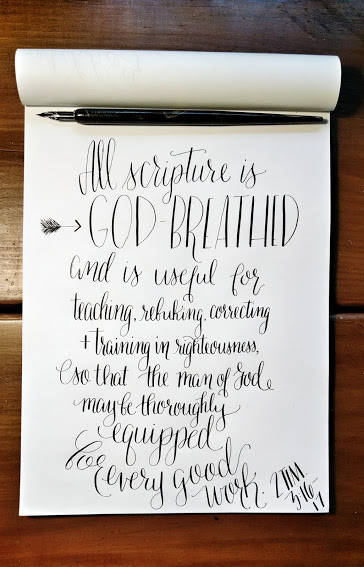 All scripture is
GOD-BREATHED
and is useful for
teaching, rebuking, correcting
+ training in righteousness,
so that the man of God
may be thoroughly
equipped
for every good
work.
2 TIM
3:16-
17